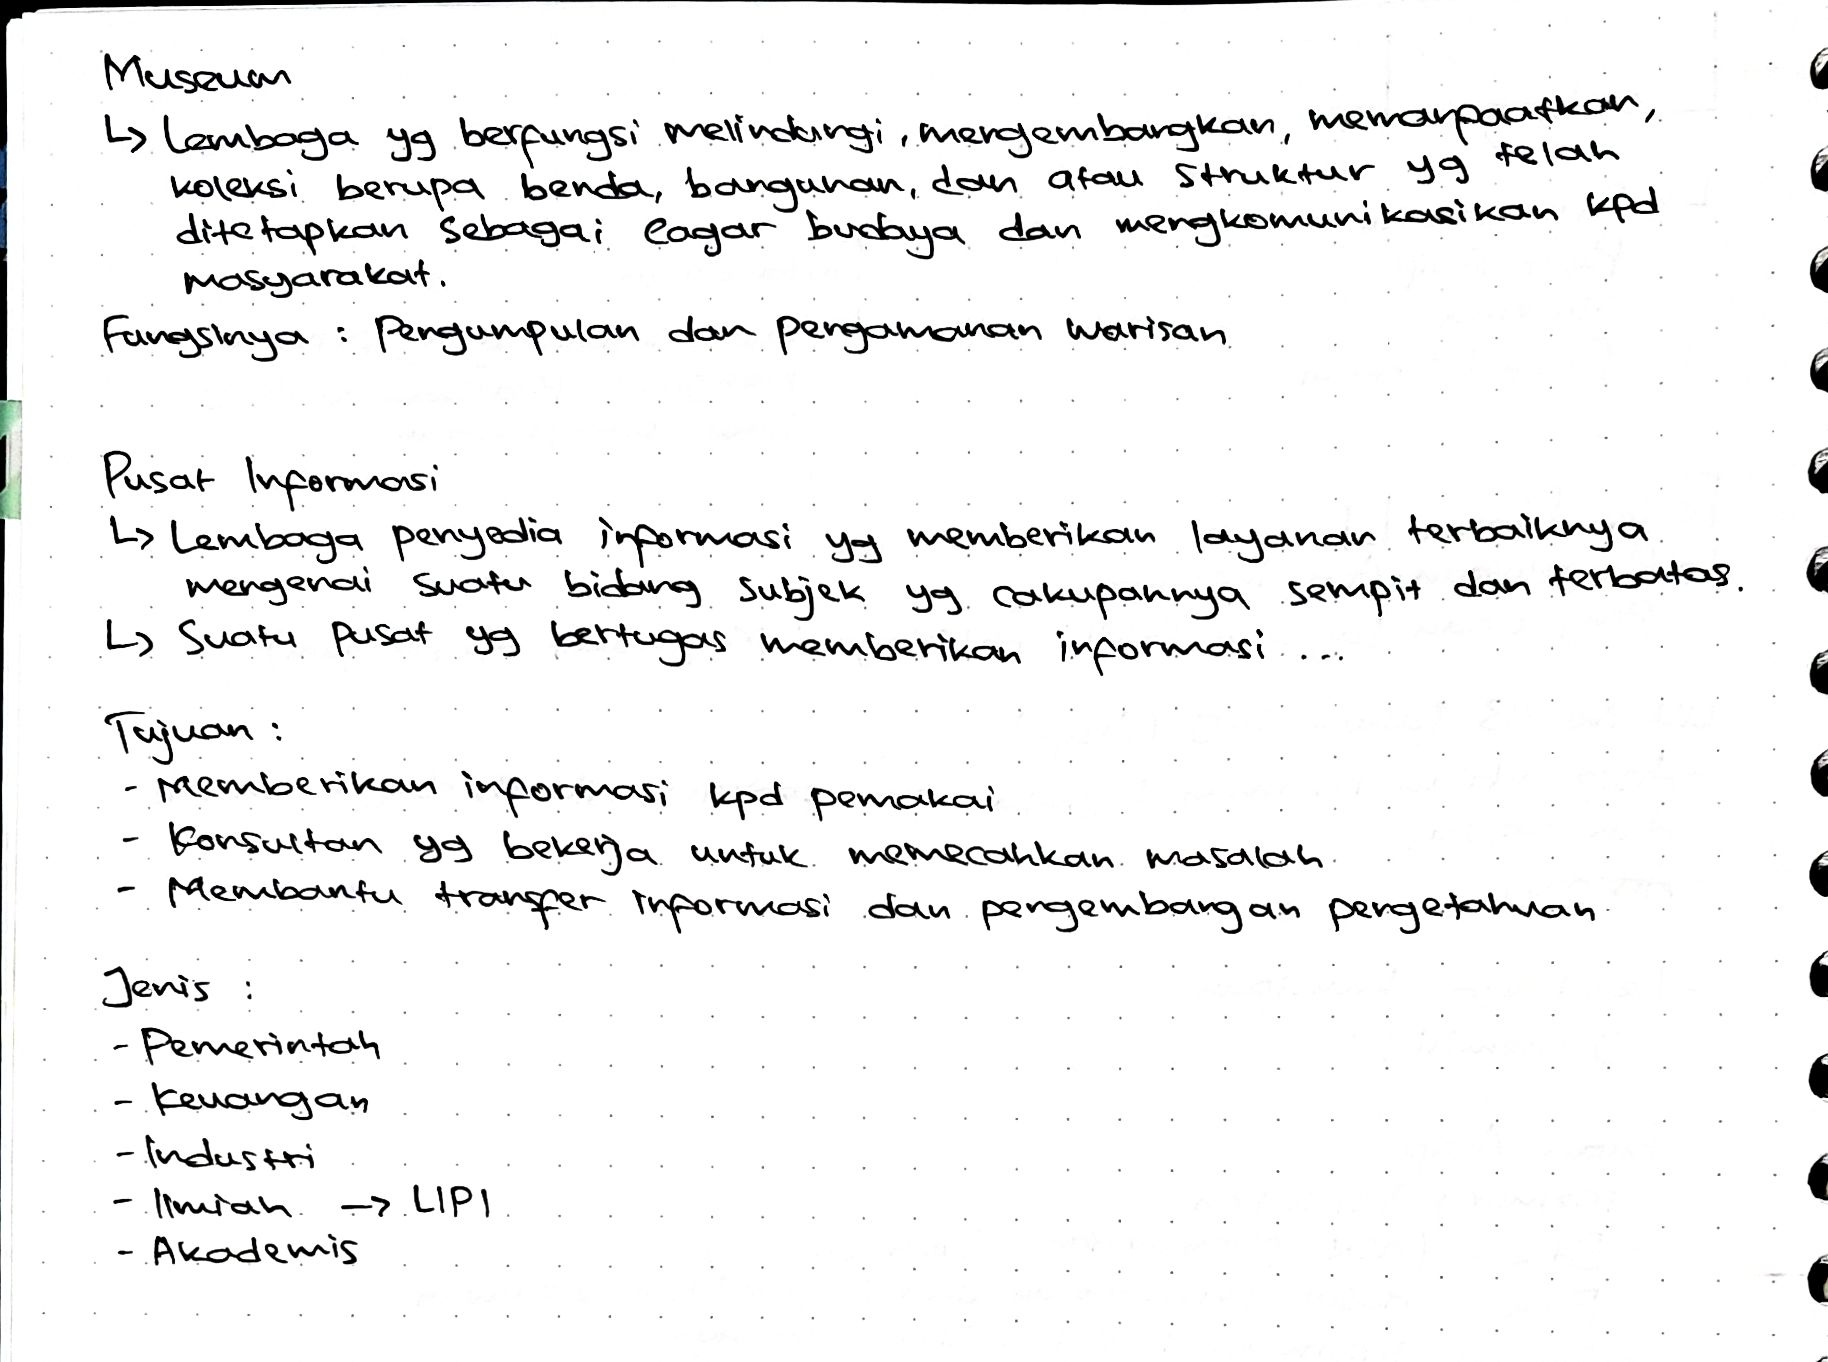 Museum
↳ Lembaga yg berfungsi melindungi, mengembangkan, memanpaatkan,
koleksi berupa benda, bangunan, dan atau struktur yg telah
ditetapkan sebagai cagar budaya dan mengkomunikasikan kpd
masyarakat.
Fungsinya : Pengumpulan dan pengamanan warisan
Pusat Informasi
↳ Lembaga penyedia informasi yg memberikan layanan terbaiknya
mengenai suatu bidang subjek yg cakupannya sempit dan terbatas.
↳ Suatu pusat yg bertugas memberikan informasi ...
Tujuan :
- Memberikan informasi kpd pemakai
- Konsultan yg bekerja untuk memecahkan masalah
- Membantu transfer informasi dan pengembangan pengetahuan
Jenis :
- Pemerintah
- Keuangan
- Industri
- Ilmiah → LIPI
- Akademis